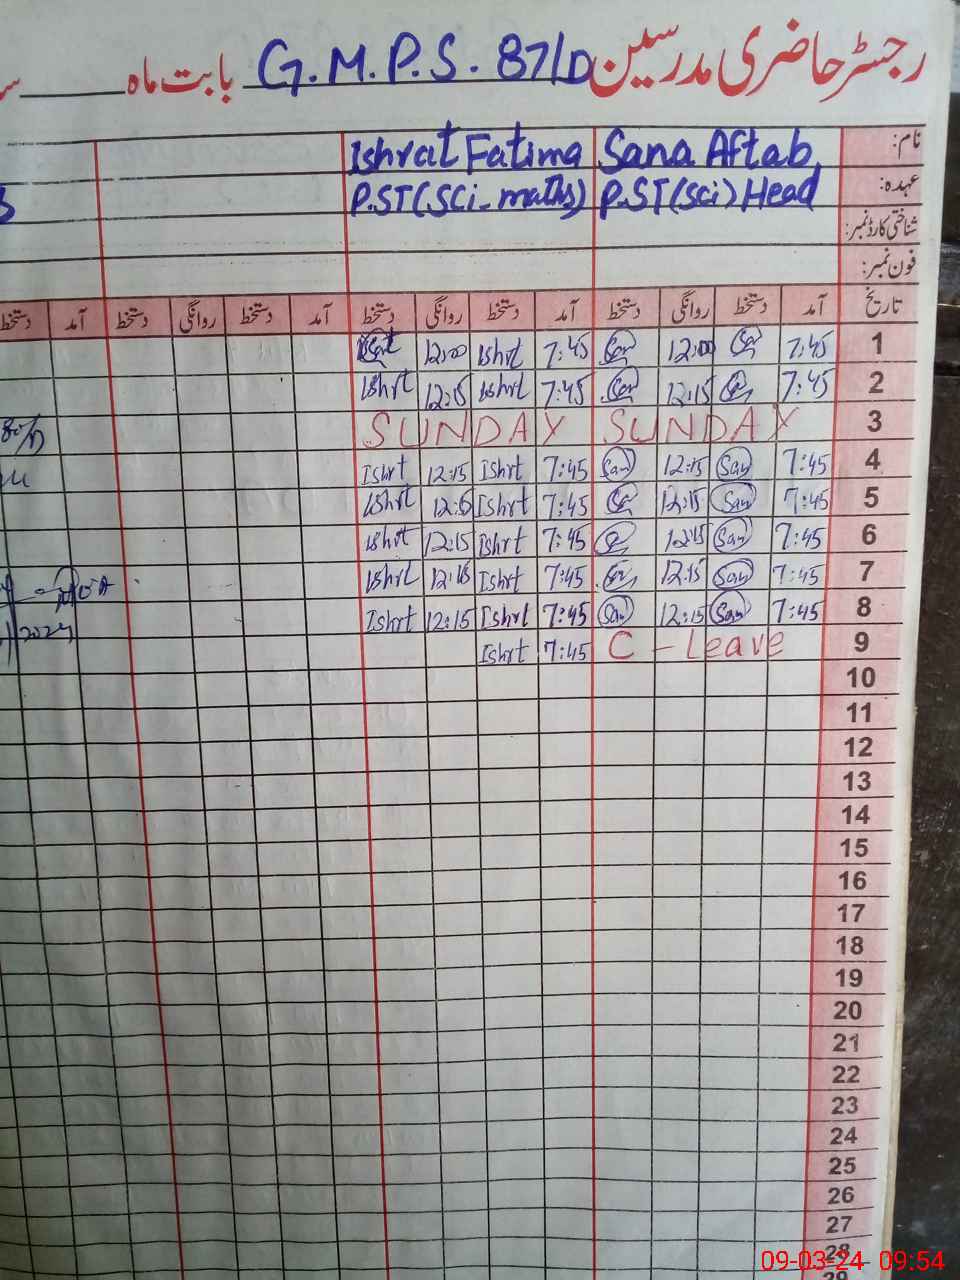 رجسٹر حاضری مدرسین G.M.P.S. 87/D بابت ماه
نام: Sana Aftab Ishrat Fatima
عہدہ: P.ST(Sci) Head P.ST(Sci-maths)
شناختی کارڈ نمبر:
فون نمبر:
تاریخ آمد دستخط روانگی دستخط آمد دستخط روانگی دستخط آمد دستخط روانگی دستخط آمد دستخط
1 7:45 12:00 7:45 Ishrt 12:00
2 7:45 12:15 7:45 Ishrt 12:15 Ishrt
3 SUNDAY SUNDAY
4 7:45 San 12:15 San 7:45 Ishrt 12:15 Ishrt
5 7:45 San 12:15 7:45 Ishrt Ishrt
6 7:45 San 12:15 7:45 Ishrt 12:15 Ishrt
7 7:45 San 12:15 7:45 Ishrt Ishrt
8 7:45 San 12:15 San 7:45 Ishrt 12:15 Ishrt
9 C - Leave 7:45 Ishrt
10
11
12
13
14
15
16
17
18
19
20
21
22
23
24
25
26
27
28
09-03-24 09:54